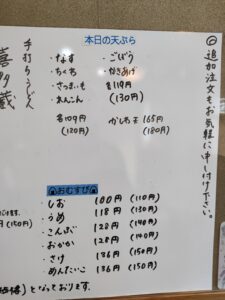 本日の天ぷら
◎追加注文もお気軽に申し付け下さい。
手打ちうどん
喜多蔵
・なす
・ちくわ
・さつまいも
・れんこん
各109円
(120円)
・ごぼう
・かきあげ
各119円
(130円)
かしわ天 165円
(180円)
おむすび
・しお 100円 (110円)
・うめ 118円 (130円)
・こんぶ 128円 (140円)
・おかか 128円 (140円)
・さけ 136円 (150円)
・めんたいこ 136円 (150円)
となっております。